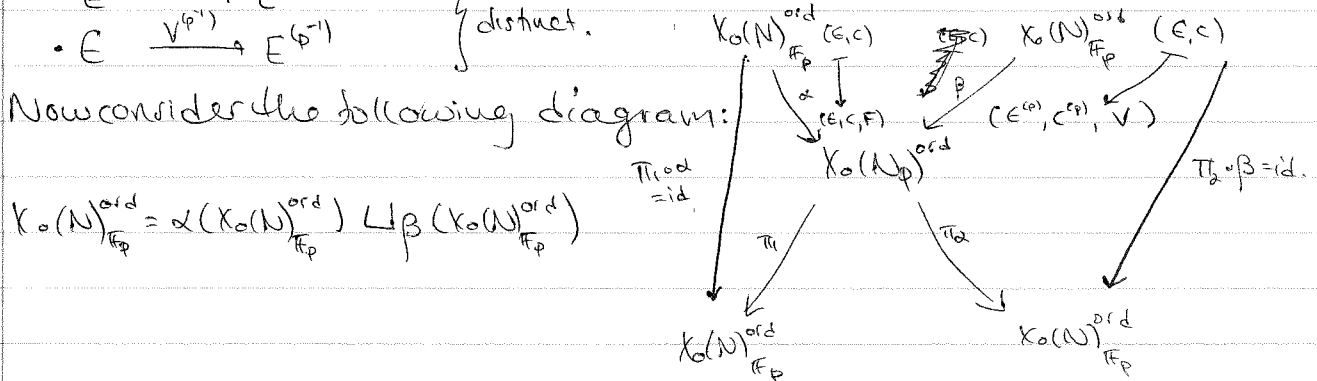 · E \xrightarrow{V^{(p^{-1})}} E^{(p^{-1})} } distinct.
Now consider the following diagram:
X_0(N)^{ord}_{F_p} = α(X_0(N)^{ord}_{F_p}) ⊔ β(X_0(N)^{ord}_{F_p})
X_0(N)^{ord}_{F_p} (E,C) X_0(N)^{ord}_{F_p} (E,C)
α (E,C,F) β (E^{(p)}, C^{(p)}, V)
X_0(Np)^{ord}
π_1∘α = id. π_2∘β = id.
π_1 π_2
X_0(N)^{ord}_{F_p} X_0(N)^{ord}_{F_p}